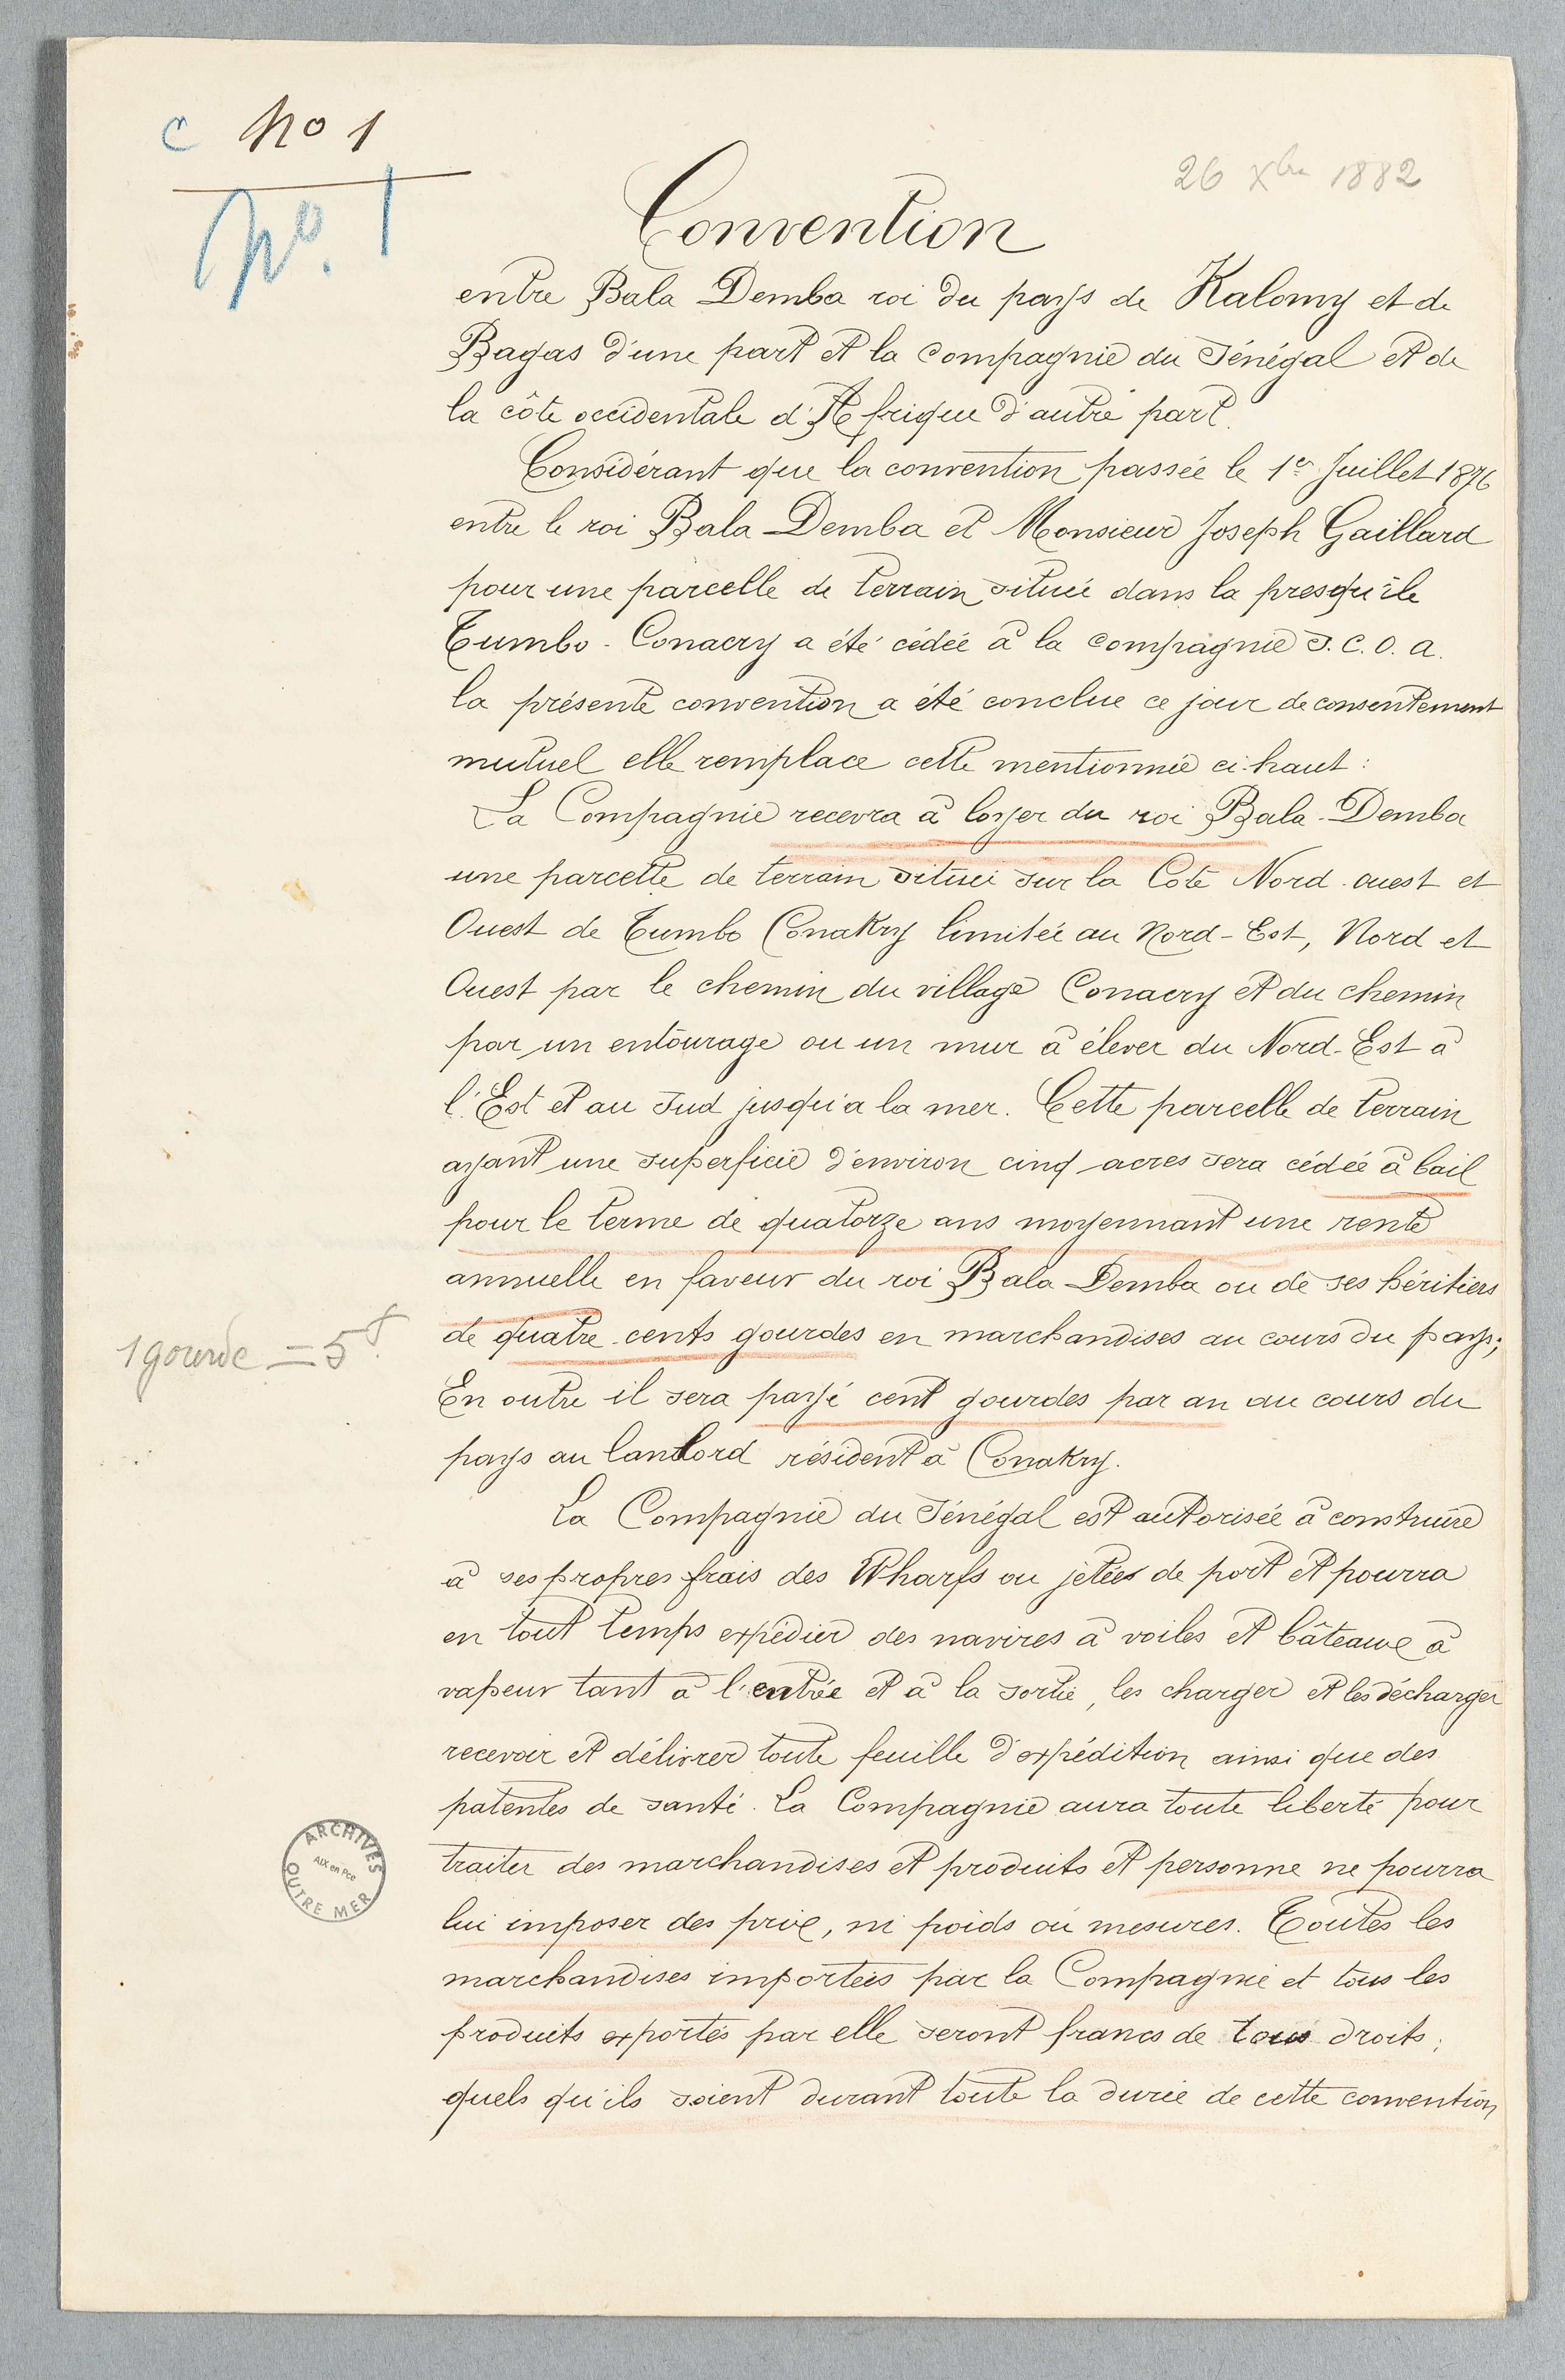 C No 1
No. 1
26 Xbre 1882
Convention
entre Bala Demba roi du pays de Kalomy et de
Bagas d'une part et la Compagnie du Sénégal et de
la côte occidentale d'Afrique d'autre part.
Considérant que la convention passée le 1er Juillet 1876
entre le roi Bala Demba et Monsieur Joseph Gaillard
pour une parcelle de terrain située dans la presqu'île
Tumbo-Conacry a été cédée à la compagnie S.C.O.A.
la présente convention a été conclue ce jour de consentement
mutuel elle remplace celle mentionnée ci-haut :
La Compagnie recevra à loyer du roi Bala-Demba
une parcelle de terrain située sur la Côte Nord-ouest et
Ouest de Tumbo Conakry limitée au Nord-Est, Nord et
Ouest par le chemin du village Conacry et du chemin
par un entourage ou un mur à élever du Nord-Est à
l'Est et au Sud jusqu'a la mer. Cette parcelle de terrain
ayant une superficie d'environ cinq acres sera cédée à bail
pour le terme de quatorze ans moyennant une rente
annuelle en faveur du roi Bala Demba ou de ses héritiers
de quatre cents gourdes en marchandises au cours du pays;
1 gourde = 5f.
En outre il sera payé cent gourdes par an au cours du
pays au landlord résident à Conakry.
La Compagnie du Sénégal est autorisée à construire
à ses propres frais des Wharfs ou jetées de port et pourra
en tout temps expédier des navires à voiles et bâteaux à
vapeur tant à l'entrée et à la sortie, les charger et les décharger
recevoir et délivrer toute feuille d'expédition ainsi que des
patentes de santé. La Compagnie aura toute liberté pour
traiter des marchandises et produits et personne ne pourra
lui imposer des prix, ni poids ou mesures. Toutes les
marchandises importées par la Compagnie et tous les
produits exportés par elle seront francs de tous droits;
quels qu'ils soient durant toute la durée de cette convention
ARCHIVES
AIX en Pce
OUTRE MER